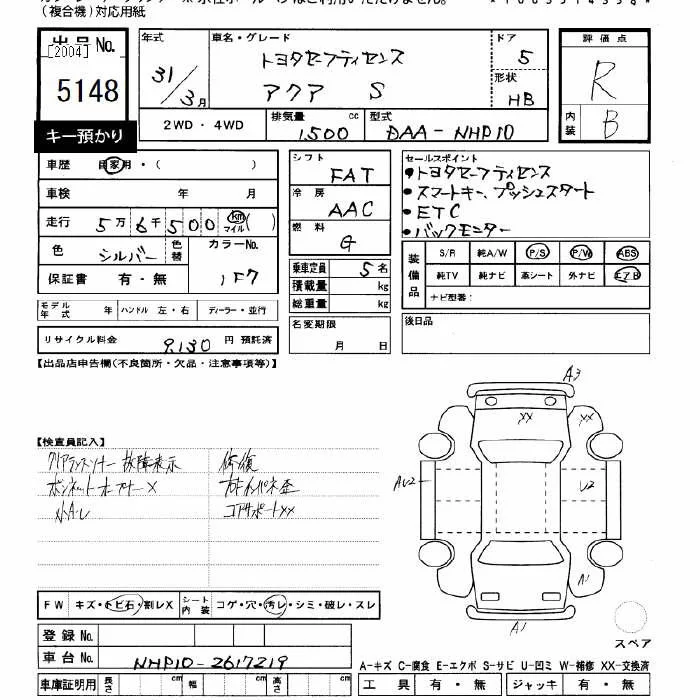 (複合機)対応用紙
出品No. 年式 車名・グレード ドア 評価点
[2004] トヨタセーフティセンス 5
5148 31/3月 アクア S 形状 R
HB
キー預かり 2WD・4WD 排気量 1500 cc 型式 DAA-NHP10 内装 B
車歴 自家用・( ) シフト FAT セールスポイント
・トヨタセーフティセンス
車検 年 月 冷房 AAC ・スマートキー、プッシュスタート
・ETC
走行 5万6千500 km マイル ( ) 燃料 G ・バックモニター
色 シルバー 色替 カラーNo. 1F7
乗車定員 5名 装備品 S/R 純A/W P/S P/W ABS
保証書 有・無 積載量 kg 純TV 純ナビ 革シート 外ナビ エアB
総重量 kg ナビ型番:
モデル年式 年 ハンドル 左・右 ディーラー・並行
名変期限 月 日 後日品
リサイクル料金 9,130 円 預託済
【出品店申告欄(不良箇所・欠品・注意事項等)】
A3
XX
【検査員記入】
クリアランスソナー故障表示 修復
ボンネットオープナーX
AU2 U2
小A・U コアサポートXX
A1
FW キズ・トビ石・割レX シート内装 コゲ・穴・汚レ・シミ・破レ・スレ
A1
登録No. スペア
車台No. NHP10-2617219
A-キズ C-腐食 E-エクボ S-サビ U-凹ミ W-補修 XX-交換済
車庫証明用 長さ cm 幅 cm 高さ cm 工具 有・無 ジャッキ 有・無